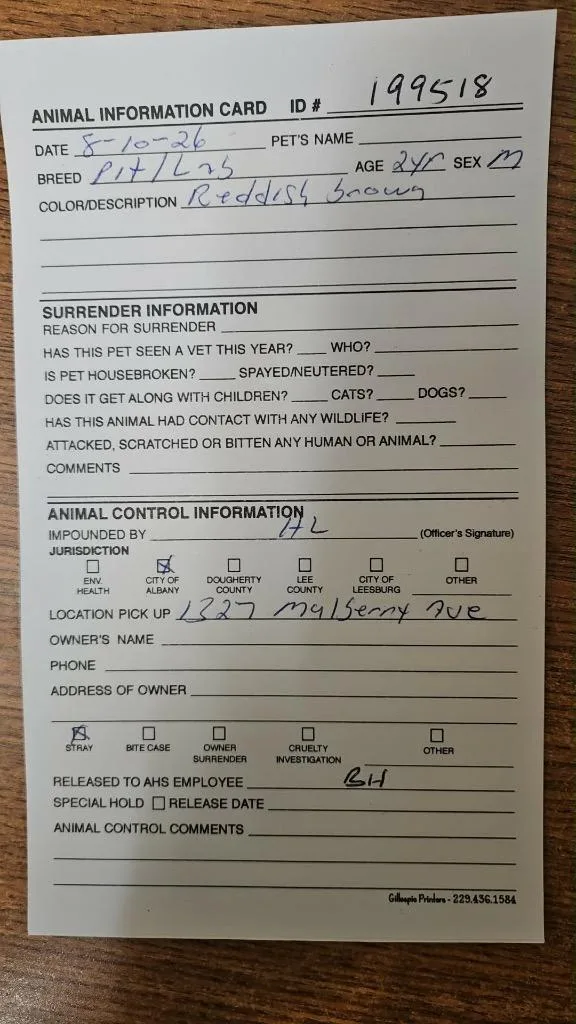 ANIMAL INFORMATION CARD ID # 199518
DATE 8-10-26 PET'S NAME
BREED Pit/Lab AGE 2yr SEX M
COLOR/DESCRIPTION Reddish brown
SURRENDER INFORMATION
REASON FOR SURRENDER
HAS THIS PET SEEN A VET THIS YEAR? WHO?
IS PET HOUSEBROKEN? SPAYED/NEUTERED?
DOES IT GET ALONG WITH CHILDREN? CATS? DOGS?
HAS THIS ANIMAL HAD CONTACT WITH ANY WILDLIFE?
ATTACKED, SCRATCHED OR BITTEN ANY HUMAN OR ANIMAL?
COMMENTS
ANIMAL CONTROL INFORMATION
IMPOUNDED BY HL (Officer's Signature)
JURISDICTION
ENV. HEALTH CITY OF ALBANY DOUGHERTY COUNTY LEE COUNTY CITY OF LEESBURG OTHER
LOCATION PICK UP 1327 Mulberry Ave
OWNER'S NAME
PHONE
ADDRESS OF OWNER
STRAY BITE CASE OWNER SURRENDER CRUELTY INVESTIGATION OTHER
RELEASED TO AHS EMPLOYEE BH
SPECIAL HOLD RELEASE DATE
ANIMAL CONTROL COMMENTS
Gillespie Printers - 229.436.1584